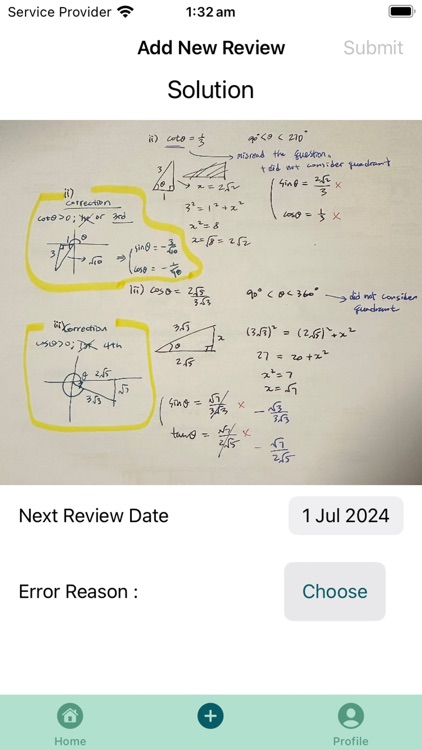 Service Provider
1:32 am
Add New Review
Submit
Solution
ii) cotθ = 1/3
90° < θ < 270°
misread the question,
+ did not consider quadrant
3
θ
1
x = 2√2
sinθ = 2√2/3 x
cosθ = 1/3 x
3² = 1² + x²
x² = 8
x = √8 = 2√2
ii)
correction
cotθ>0; 1st or 3rd
1
θ
3
√10
⇒ sinθ = -3/√10
cosθ = -1/√10
iii) cosθ = 2√5/3√3
90° < θ < 360°
did not consider
quadrant
iii) Correction
cosθ>0; 1st 4th
θ
2√5
√7
3√3
3√3
x
θ
2√5
(3√3)² = (2√5)² + x²
27 = 20 + x²
x² = 7
x = √7
sinθ = √7/3√3 x
tanθ = √7/2√5 x
- √7/2√5
Next Review Date
1 Jul 2024
Error Reason :
Choose
Home
Profile